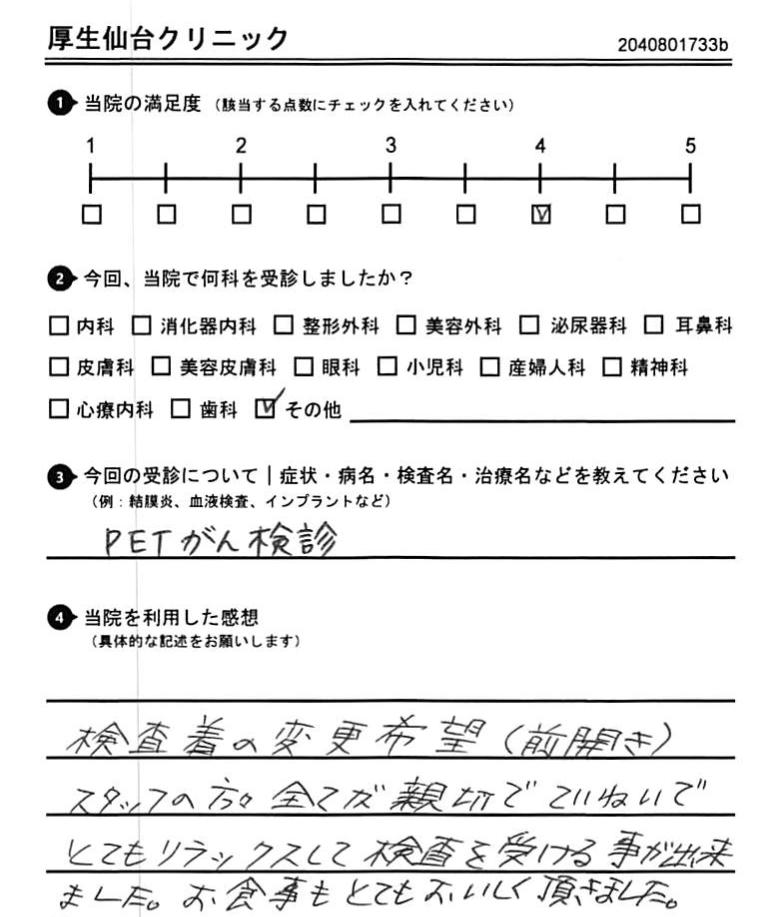 厚生仙台クリニック 2040801733b
1 当院の満足度 (該当する点数にチェックを入れてください)
1 2 3 4 5
2 今回、当院で何科を受診しましたか？
内科 消化器内科 整形外科 美容外科 泌尿器科 耳鼻科
皮膚科 美容皮膚科 眼科 小児科 産婦人科 精神科
心療内科 歯科 その他
3 今回の受診について｜症状・病名・検査名・治療名などを教えてください
(例：結膜炎、血液検査、インプラントなど)
PETがん検診
4 当院を利用した感想
(具体的な記述をお願いします)
検査着の変更希望(前開き)
スタッフの方々全てが親切でていねいで
とてもリラックスして検査を受ける事が出来
ました。お食事もとてもおいしく頂きました。